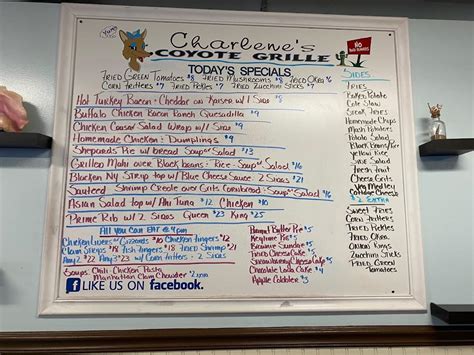 Yung
Charlene's
COYOTE GRILLE
NO
TODAY'S SPECIALS
Fried Green Tomatoes $8 Fried Mushrooms $8 Fried Okra $6
Corn Fritters $7 Fried Pickles $7 Fried Zucchini Sticks $7
Hot Turkey Bacon + Cheddar on Kaiser w/ 1 Side
Buffalo Chicken Bacon Ranch Quesadilla
Chicken Caesar Salad Wrap w/ 1 Side
Homemade Chicken + Dumplings
Shepards Pie w/ bread Soup or Salad $13
Grilled Mahi over Black beans + Rice - Soup or Salad $16
Blacken NY Strip top w/ Blue Cheese Sauce 2 Sides
Sauteed Shrimp Creole over Grits Cornbread - Soup or Salad $16
Asian Salad top w/ Ahi Tuna $12 Chicken $10
Prime Rib w/ 2 Sides Queen $23 King $25
All You Can Eat @ 4pm
Chicken Livers or Gizzards $16 Chicken Fingers $18
Clam Strips $18 Fish Fingers $18 Fried Shrimp $21
Any 2 $22 Any 3 $23 w/ Corn Fritters + 2 Sides
Soups Chili - Chicken Pasta
Manhattan Clam Chowder
Peanut Butter Pie
Keylime Pie $5
Brownie Sundae
Fried Cheese Cake
Strawberry Cheese Cake
Chocolate Lava Cake $4
Apple Cobbler $3
LIKE US ON facebook.
Sides
Fries
Baked Potato
Cole Slaw
Steak Fries
Homemade Chips
Mash Potatoes
Potato Salad
Black Beans/Rice
Yellow Rice
Side Salad
Fresh Fruit
Cheese Grits
Veg Medley
Cottage Cheese
$2 Extra
Sweet Fries
Corn Fritters
Fried Pickles
Fried Okra
Onion Rings
Zucchini Sticks
Fried Green
Tomatoes